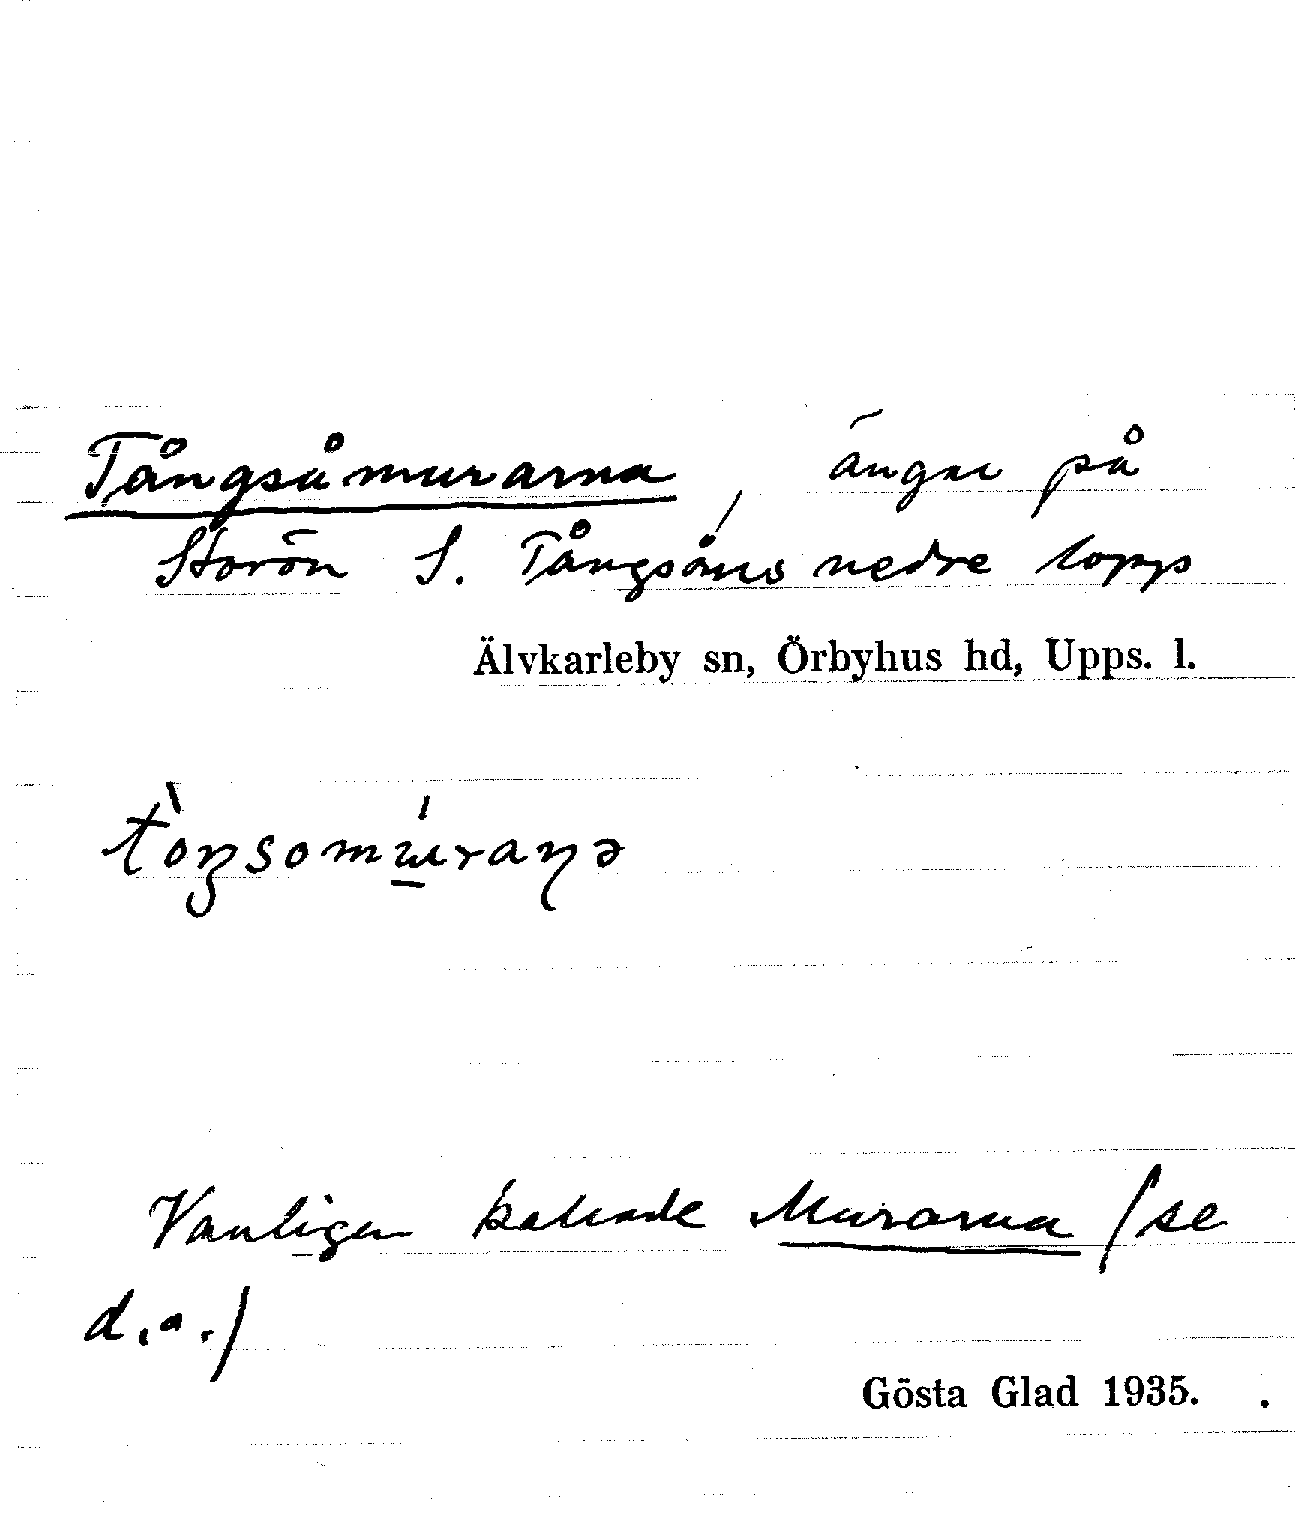 Tångsåmurarna, ängar på
Storön S. Tångsåns nedre lopp
Älvkarleby sn, Örbyhus hd, Upps. l.
tòŋsomúraɳə
Vanligen kallade Murarna /se
d.o./
Gösta Glad 1935.